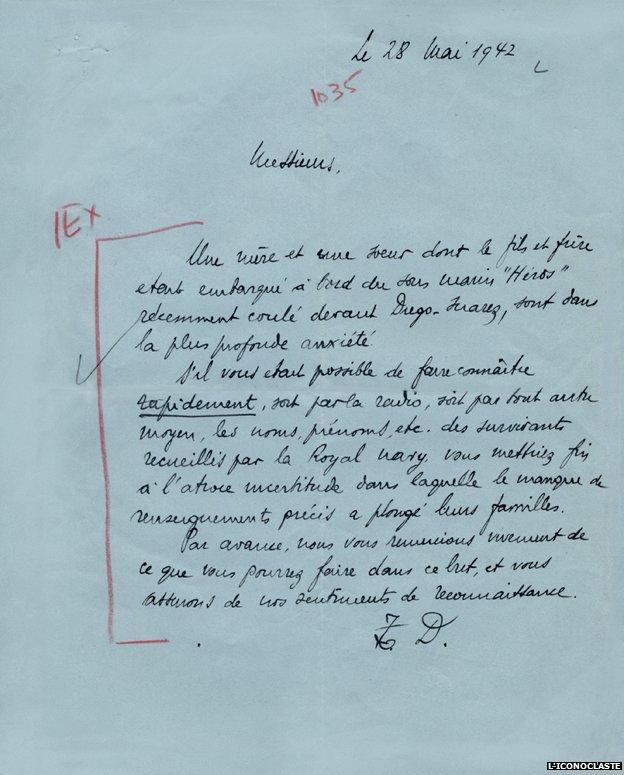 Le 28 Mai 1942
1035
Messieurs,
IEX
Une mère et une soeur dont le fils et frère
etant embarqué à bord du sous marin "Héros"
récemment coulé devant Diego-Suarez, sont dans
la plus profonde anxiété.
S'il vous etait possible de faire connaître
rapidement, soit par la radio, soit par tout autre
moyen, les noms, prénoms, etc. des survivants
recueillis par la Royal navy, vous mettriez fin
à l'atroce incertitude dans laquelle le manque de
renseignements précis a plongé leurs familles.
Par avance, nous vous remercions vivement de
ce que vous pourrez faire dans ce but, et vous
assurons de nos sentiments de reconnaissance.
D.
L-ICONOCLASTE